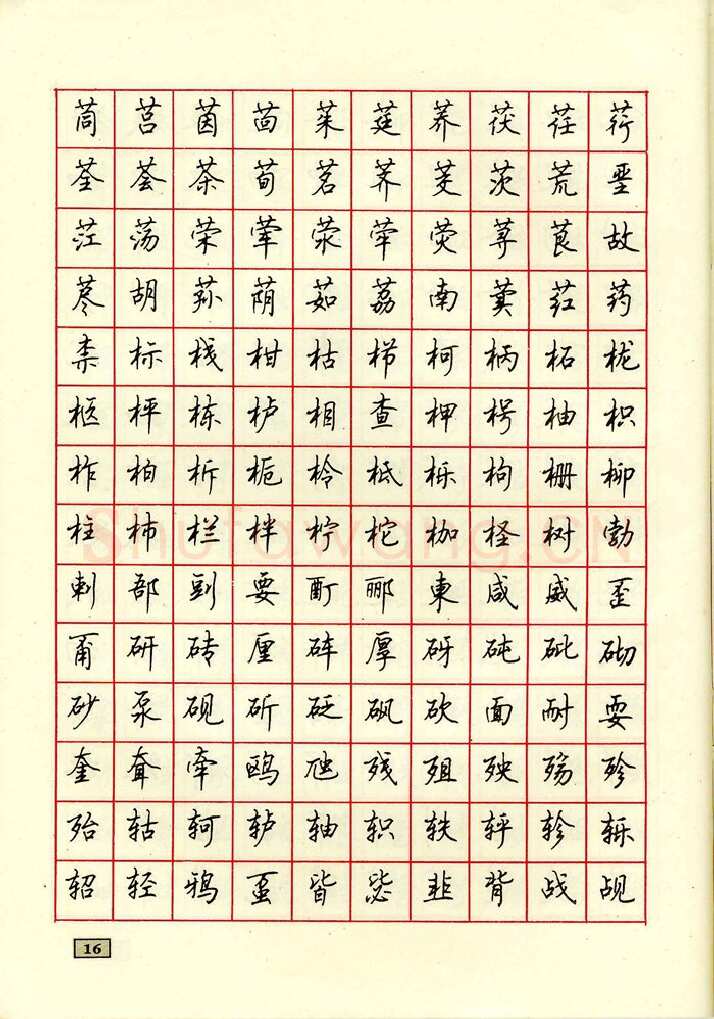 茼莒茵茴茱莛荞茯荏荇
荃荟茶荀茗荠茭茨荒垩
茳荡荣荤荥荦荧荨茛故
荩胡荪荫茹荔南荬荭药
柰标栈柑枯栉柯柄柘栊
柩枰栋栌相查柙枵柚枳
柞柏柝栀柃柢栎枸栅柳
柱柿栏柈柠柁枷柽树勃
剌郚剅要酊郦柬咸威歪
甭研砖厘砗厚砑砘砒砌
砂泵砚斫砭砜砍面耐耍
奎耷牵鸥虺残殂殃殇殄
殆轱轲轳轴轵轶轷轸轹
轺轻鸦虿皆毖韭背战觇
16
Shufawang.CN